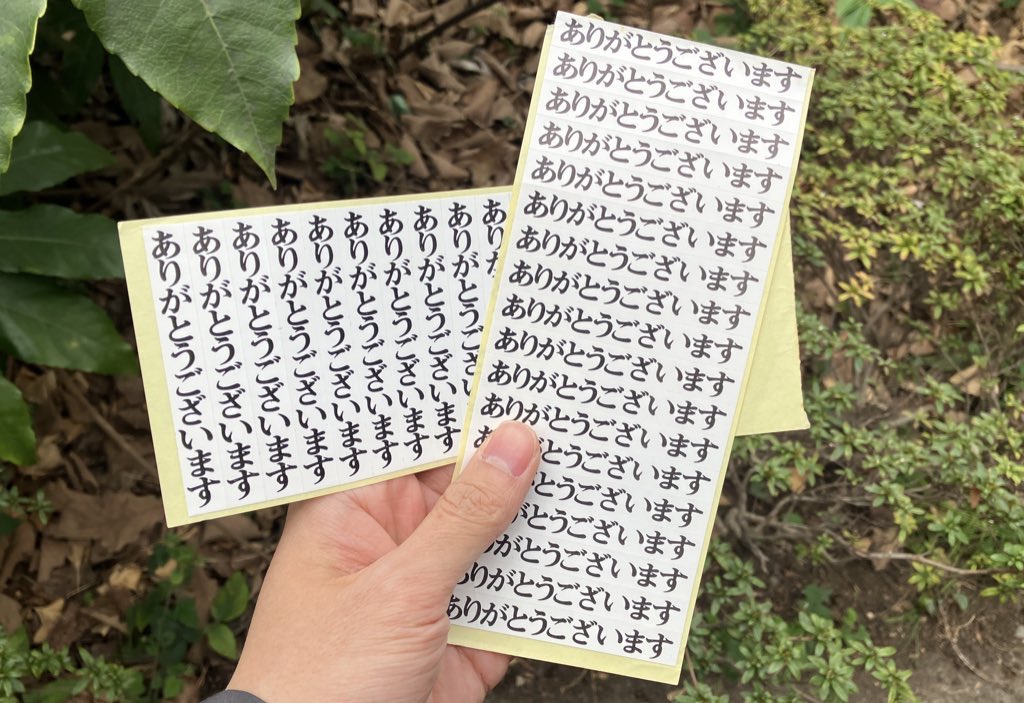 ありがとうございます
ありがとうございます
ありがとうございます
ありがとうございます
ありがとうございます
ありがとうございます
ありがとうございます
ありがとうございます
ありがとうございます
ありがとうございます
ありがとうございます
ありがとうございます
とうございます
がとうございます
がとうございます
がとうございます
ありがとうございます
ありがとうございます
あり
ありがとうござ
ありがとうございます
ありがとうございます
ありがとうございます
ありがとうございます
ありがとうございます
ありがとうございます
ありがとうございます
ありがとうございます